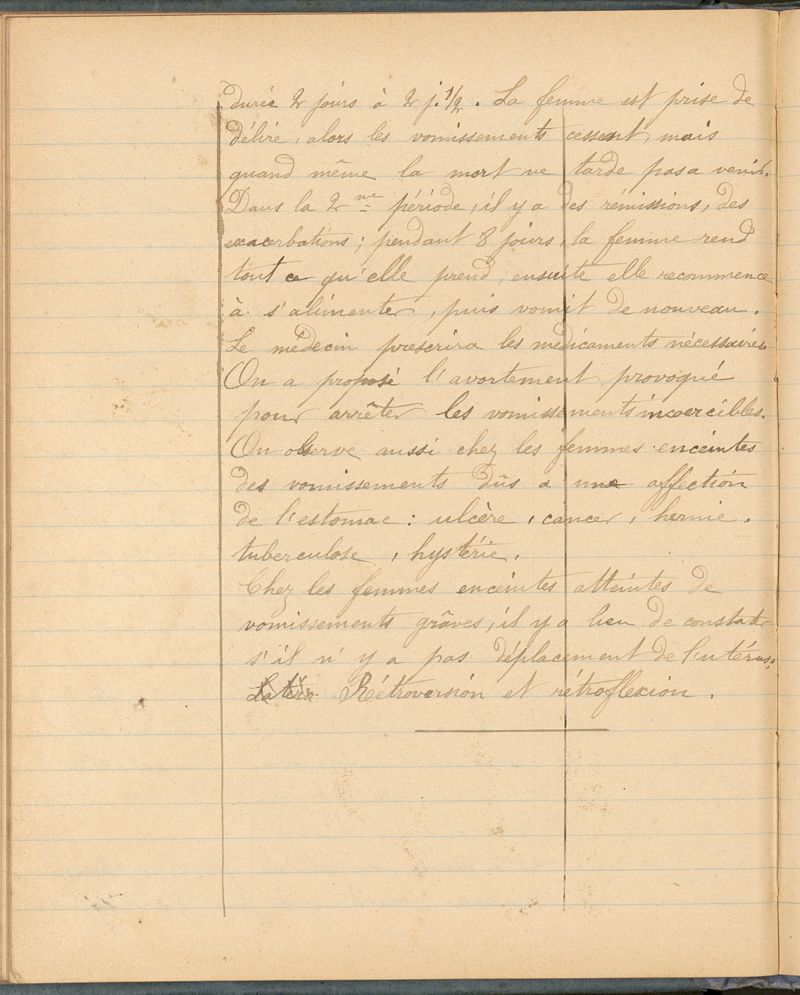 durée 2 jours à 2 j. 1/2. La femme est prise de
délire, alors les vomissements cessent, mais
quand même la mort ne tarde pas a venir.
Dans la 2me période, il y a des rémissions, des
exacerbations; pendant 8 jours, la femme rend
tout ce qu'elle prend, ensuite elle recommence
à s'alimenter, puis vomit de nouveau.
Le médecin prescrira les médicaments nécessaires
On a proposé l'avortement provoqué
pour arrêter les vomissements incoercibles.
On observe aussi chez les femmes enceintes
des vomissements dûs a une affection
de l'estomac: ulcère, cancer, hernie.
tuberculose, hystérie.
Chez les femmes enceintes atteintes de
vomissements grâves, il y a lieu de constater
s'il n'y a pas déplacement de l'utérus.
Rétroversion et rétroflexion.